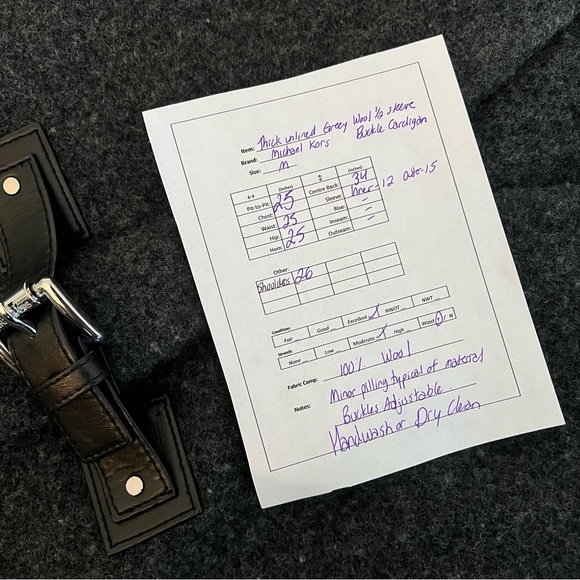 Item: Thick unlined Grey Wool 1/2 sleeve
Buckle Cardigan
Brand: Michael Kors
Size: M
↔ (inches) ↕ (inches)
Pit-to-Pit: 25 Centre Back: 34
Chest: Sleeve: Inner-12 outer-15
Waist: 25 Rise: -
Hip: Inseam: -
Hem: 25 Outseam: -
Other:
Shoulders 26
Condition:
Fair __ Good __ Excellent ✓ NWOT __ NWT __
Stretch:
None __ Low __ Moderate ✓ High __ Wool Y / N
Fabric Comp: 100% Wool
Notes: Minor pilling typical of material
Buckles Adjustable.
Handwash or Dry Clean